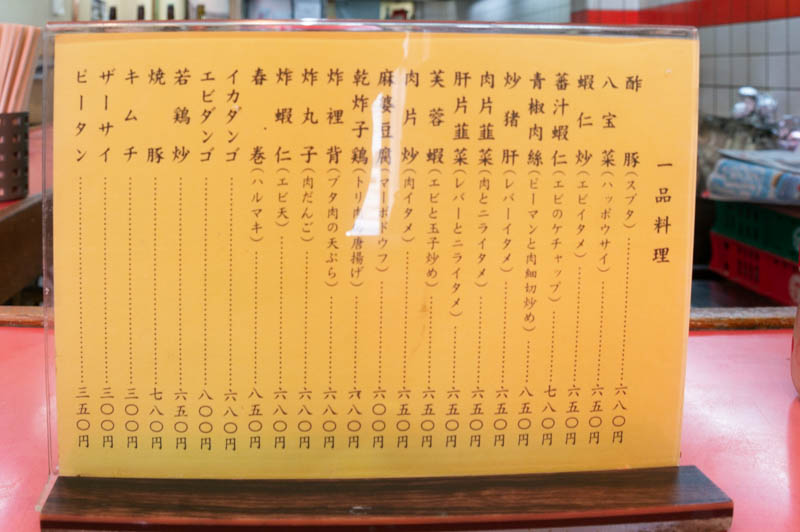 一品料理
酢豚(スブタ)六八〇円
八宝菜(ハッポウサイ)六五〇円
蝦仁炒(エビイタメ)六五〇円
蕃汁蝦仁(エビのケチャップ)七八〇円
青椒肉絲(ピーマンと肉細切炒め)八五〇円
炒猪肝(レバーイタメ)六五〇円
肉片韮菜(肉とニライタメ)六五〇円
肝片韮菜(レバーとニライタメ)六五〇円
芙蓉蝦(エビと玉子炒め)六五〇円
肉片炒(肉イタメ)六五〇円
麻婆豆腐(マーボドウフ)六〇〇円
乾炸子鶏(トリ肉の唐揚げ)六八〇円
炸裡背(ブタ肉の天ぷら)六八〇円
炸丸子(肉だんご)六八〇円
炸蝦仁(エビ天)六八〇円
春巻(ハルマキ)八五〇円
イカダンゴ六八〇円
エビダンゴ八〇〇円
若鶏炒六五〇円
焼豚七八〇円
キムチ三〇〇円
ザーサイ三〇〇円
ピータン三五〇円